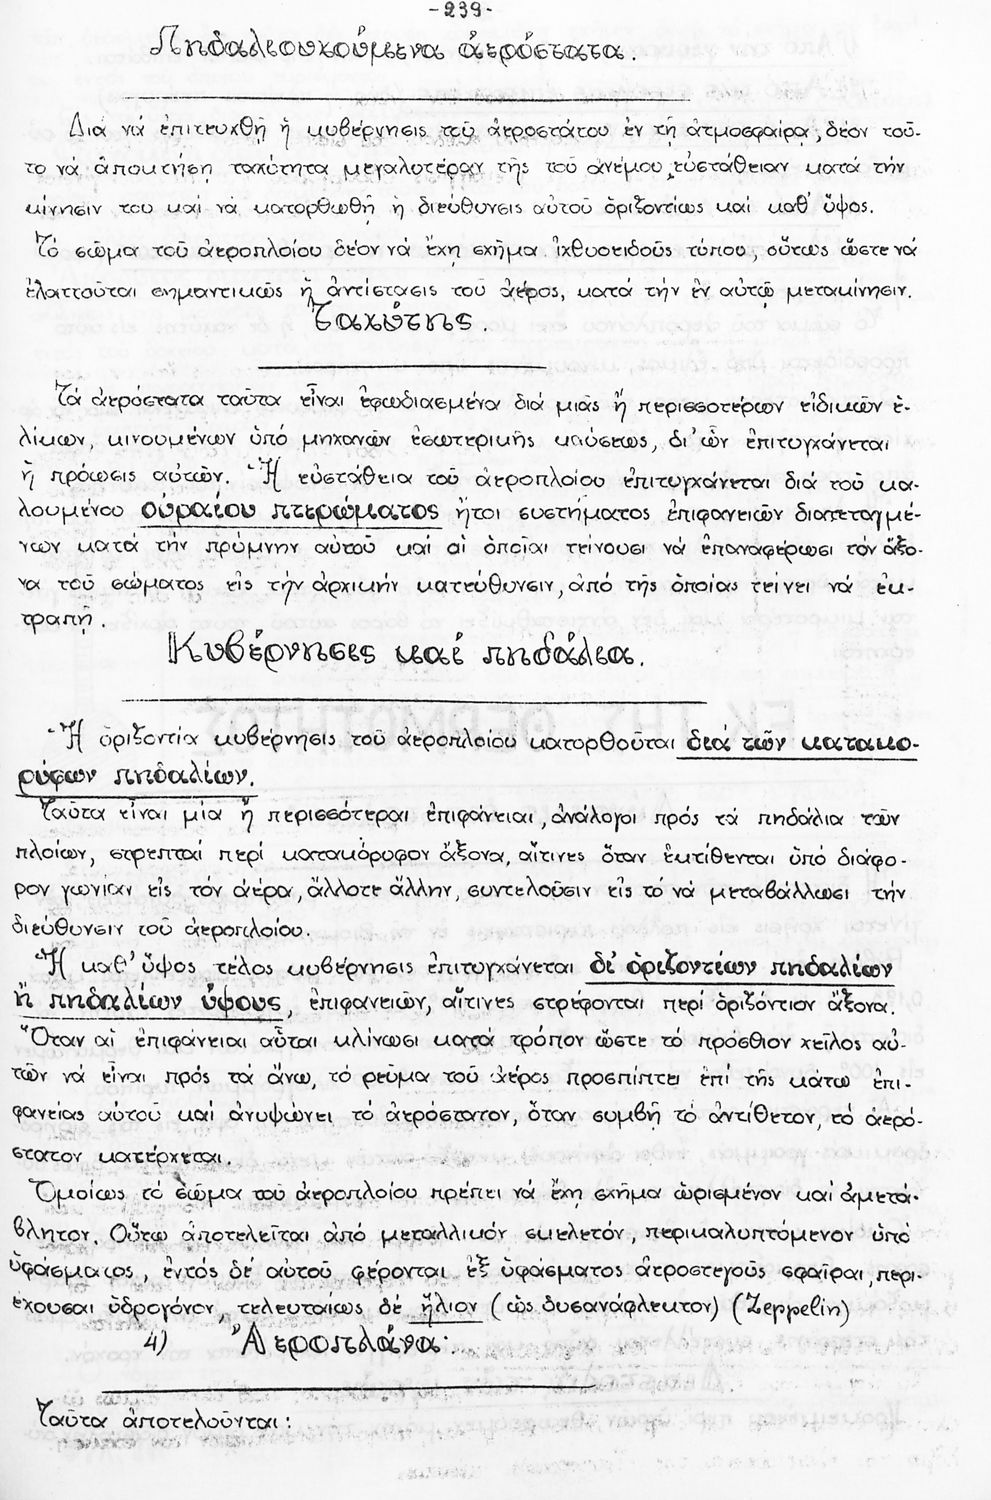 -239-
Πηδαλιουχούμενα ἀερόστατα.
Διά νά ἐπιτευχθῇ ἡ κυβέρνησις τοῦ ἀεροστάτου ἐν τῇ ἀτμοσφαίρᾳ, δέον τοῦ-
το νά ἀποκτήσῃ ταχύτητα μεγαλυτέραν τῆς τοῦ ἀνέμου, εὐστάθειαν κατά τήν
κίνησίν του καί νά κατορθωθῇ ἡ διεύθυνσις αὐτοῦ ὁριζοντίως καί καθ' ὕψος.
Τό σῶμα τοῦ ἀεροπλοίου δέον νά ἔχῃ σχῆμα ἰχθυοειδοῦς τύπου, οὕτως ὥστε νά
ἐλαττοῦται σημαντικῶς ἡ ἀντίστασις τοῦ ἀέρος, κατά τήν ἐν αὐτῷ μετακίνησιν.
Ταχύτης.
Τά ἀερόστατα ταῦτα εἶναι ἐφωδιασμένα διά μιᾶς ἤ περισσοτέρων εἰδικῶν ἑ-
λίκων, κινουμένων ὑπό μηχανῶν ἐσωτερικῆς καύσεως, δι' ὧν ἐπιτυγχάνεται
ἡ πρόωσις αὐτῶν. Ἡ εὐστάθεια τοῦ ἀεροπλοίου ἐπιτυγχάνεται διά τοῦ κα-
λουμένου οὐραίου πτερώματος ἤτοι συστήματος ἐπιφανειῶν διατεταγμέ-
νων κατά τήν πρύμνην αὐτοῦ καί αἱ ὁποῖαι τείνουσι νά ἐπαναφέρωσι τόν ἄξο-
να τοῦ σώματος εἰς τήν ἀρχικήν κατεύθυνσιν, ἀπό τῆς ὁποίας τείνει νά ἐκ-
τραπῇ.
Κυβέρνησις καί πηδάλια.
Ἡ ὁριζοντία κυβέρνησις τοῦ ἀεροπλοίου κατορθοῦται διά τῶν κατακο-
ρύφων πηδαλίων.
Ταῦτα εἶναι μία ἤ περισσότεραι ἐπιφάνειαι, ἀνάλογοι πρός τά πηδάλια τῶν
πλοίων, στρεπταί περί κατακόρυφον ἄξονα, αἵτινες ὅταν ἐκτίθενται ὑπό διάφο-
ρον γωνίαν εἰς τόν ἀέρα, ἄλλοτε ἄλλην, συντελοῦσιν εἰς τό νά μεταβάλλωσι τήν
διεύθυνσιν τοῦ ἀεροπλοίου.
Ἡ καθ' ὕψος τέλος κυβέρνησις ἐπιτυγχάνεται δι' ὁριζοντίων πηδαλίων
ἤ πηδαλίων ὕψους, ἐπιφανειῶν, αἵτινες στρέφονται περί ὁριζόντιον ἄξονα.
Ὅταν αἱ ἐπιφάνειαι αὗται κλίνωσι κατά τρόπον ὥστε τό πρόσθιον χεῖλος αὐ-
τῶν νά εἶναι πρός τά ἄνω, τό ρεῦμα τοῦ ἀέρος προσπίπτει ἐπί τῆς κάτω ἐπι-
φανείας αὐτοῦ καί ἀνυψώνει τό ἀερόστατον, ὅταν συμβῇ τό ἀντίθετον, τό ἀερό-
στατον κατέρχεται.
Ὁμοίως τό σῶμα τοῦ ἀεροπλοίου πρέπει νά ἔχῃ σχῆμα ὡρισμένον καί ἀμετά-
βλητον. Οὕτω ἀποτελεῖται ἀπό μεταλλικόν σκελετόν, περικαλυπτόμενον ὑπό
ὑφάσματος, ἐντός δέ αὐτοῦ φέρονται ἐξ ὑφάσματος ἀεροστεγοῦς σφαῖραι, περι-
έχουσαι ὑδρογόνον, τελευταίως δέ ἥλιον (ὡς δυσανάφλεκτον) (Zeppelin)
4) Ἀεροπλάνα:
Ταῦτα ἀποτελοῦνται: